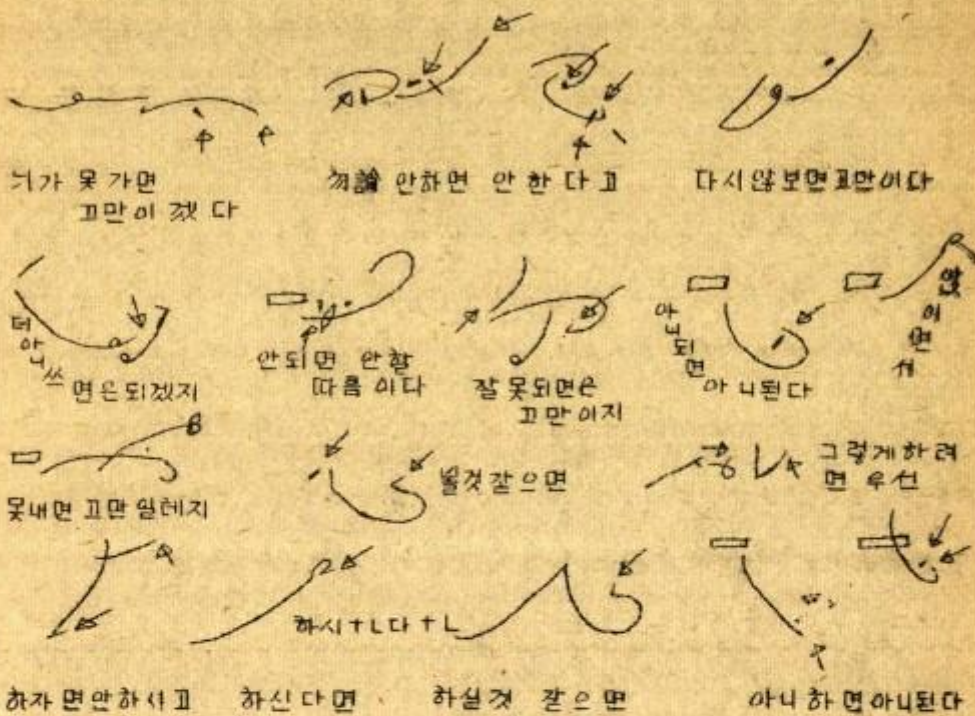 늬가 못 가면
꼬만이겠다
勿論 안하면 안한다고
다시않보면꼬만이다
더아니쓰
면은되겠지
안되면 안할
따름이다
잘못되면은
꼬만이지
아니되면
아니된다
않이면서
못내면 꼬만일레지
될것같으면
그렇게하려
면 우선
하시+ㄴ다+ㄴ
하자면안하시고
하신다면
하실것 같으면
아니하면아니된다